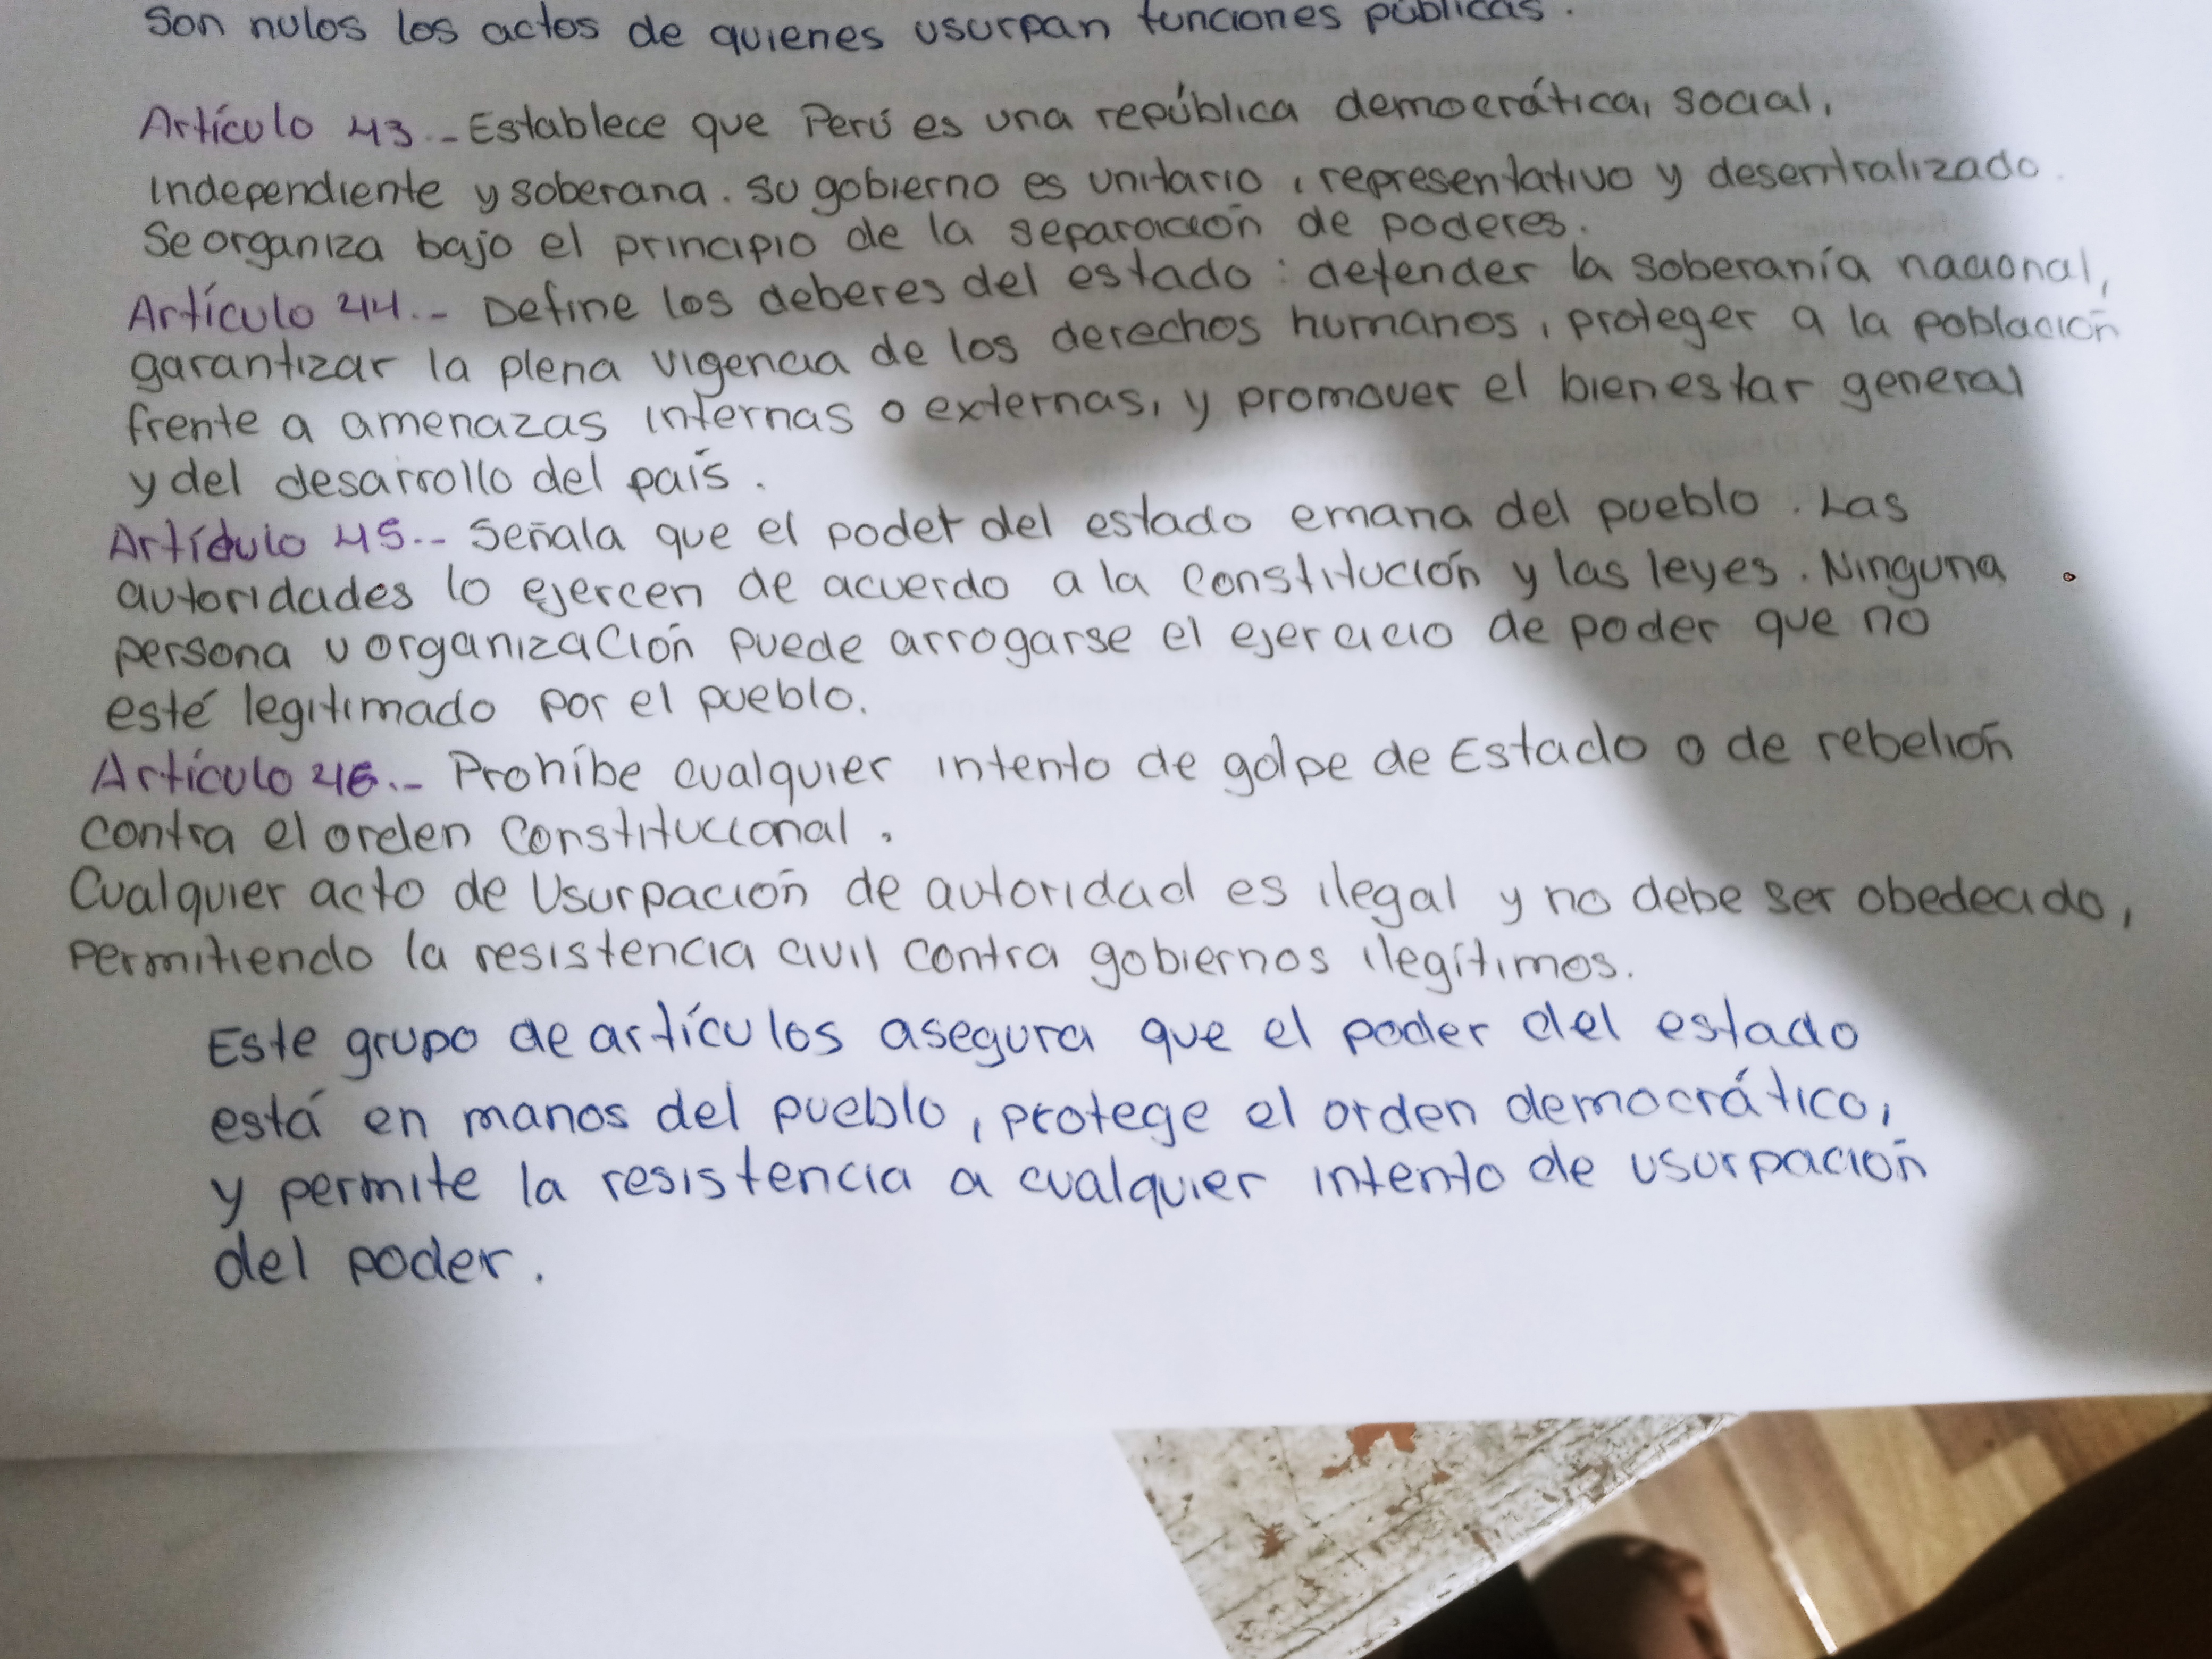 son nulos los actos de quienes usurpan funciones públicas.
Artículo 43.- Establece que Perú es una república democrática, social,
independiente y soberana. su gobierno es unitario, representativo y desentralizado.
Se organiza bajo el principio de la separación de poderes.
Artículo 44.- Define los deberes del estado: defender la soberanía nacional,
garantizar la plena vigencia de los derechos humanos, proteger a la población
frente a amenazas internas o externas, y promover el bienestar general
y del desarrollo del país.
Artículo 45.- Señala que el poder del estado emana del pueblo. Las
autoridades lo ejercen de acuerdo a la Constitución y las leyes. Ninguna
persona u organización puede arrogarse el ejercicio de poder que no
esté legitimado por el pueblo.
Artículo 46.- Prohíbe cualquier intento de golpe de Estado o de rebelión
contra el orden Constitucional.
Cualquier acto de Usurpación de autoridad es ilegal y no debe ser obedecido,
permitiendo la resistencia civil contra gobiernos ilegítimos.
Este grupo de artículos asegura que el poder del estado
está en manos del pueblo, protege el orden democrático,
y permite la resistencia a cualquier intento de usurpación
del poder.